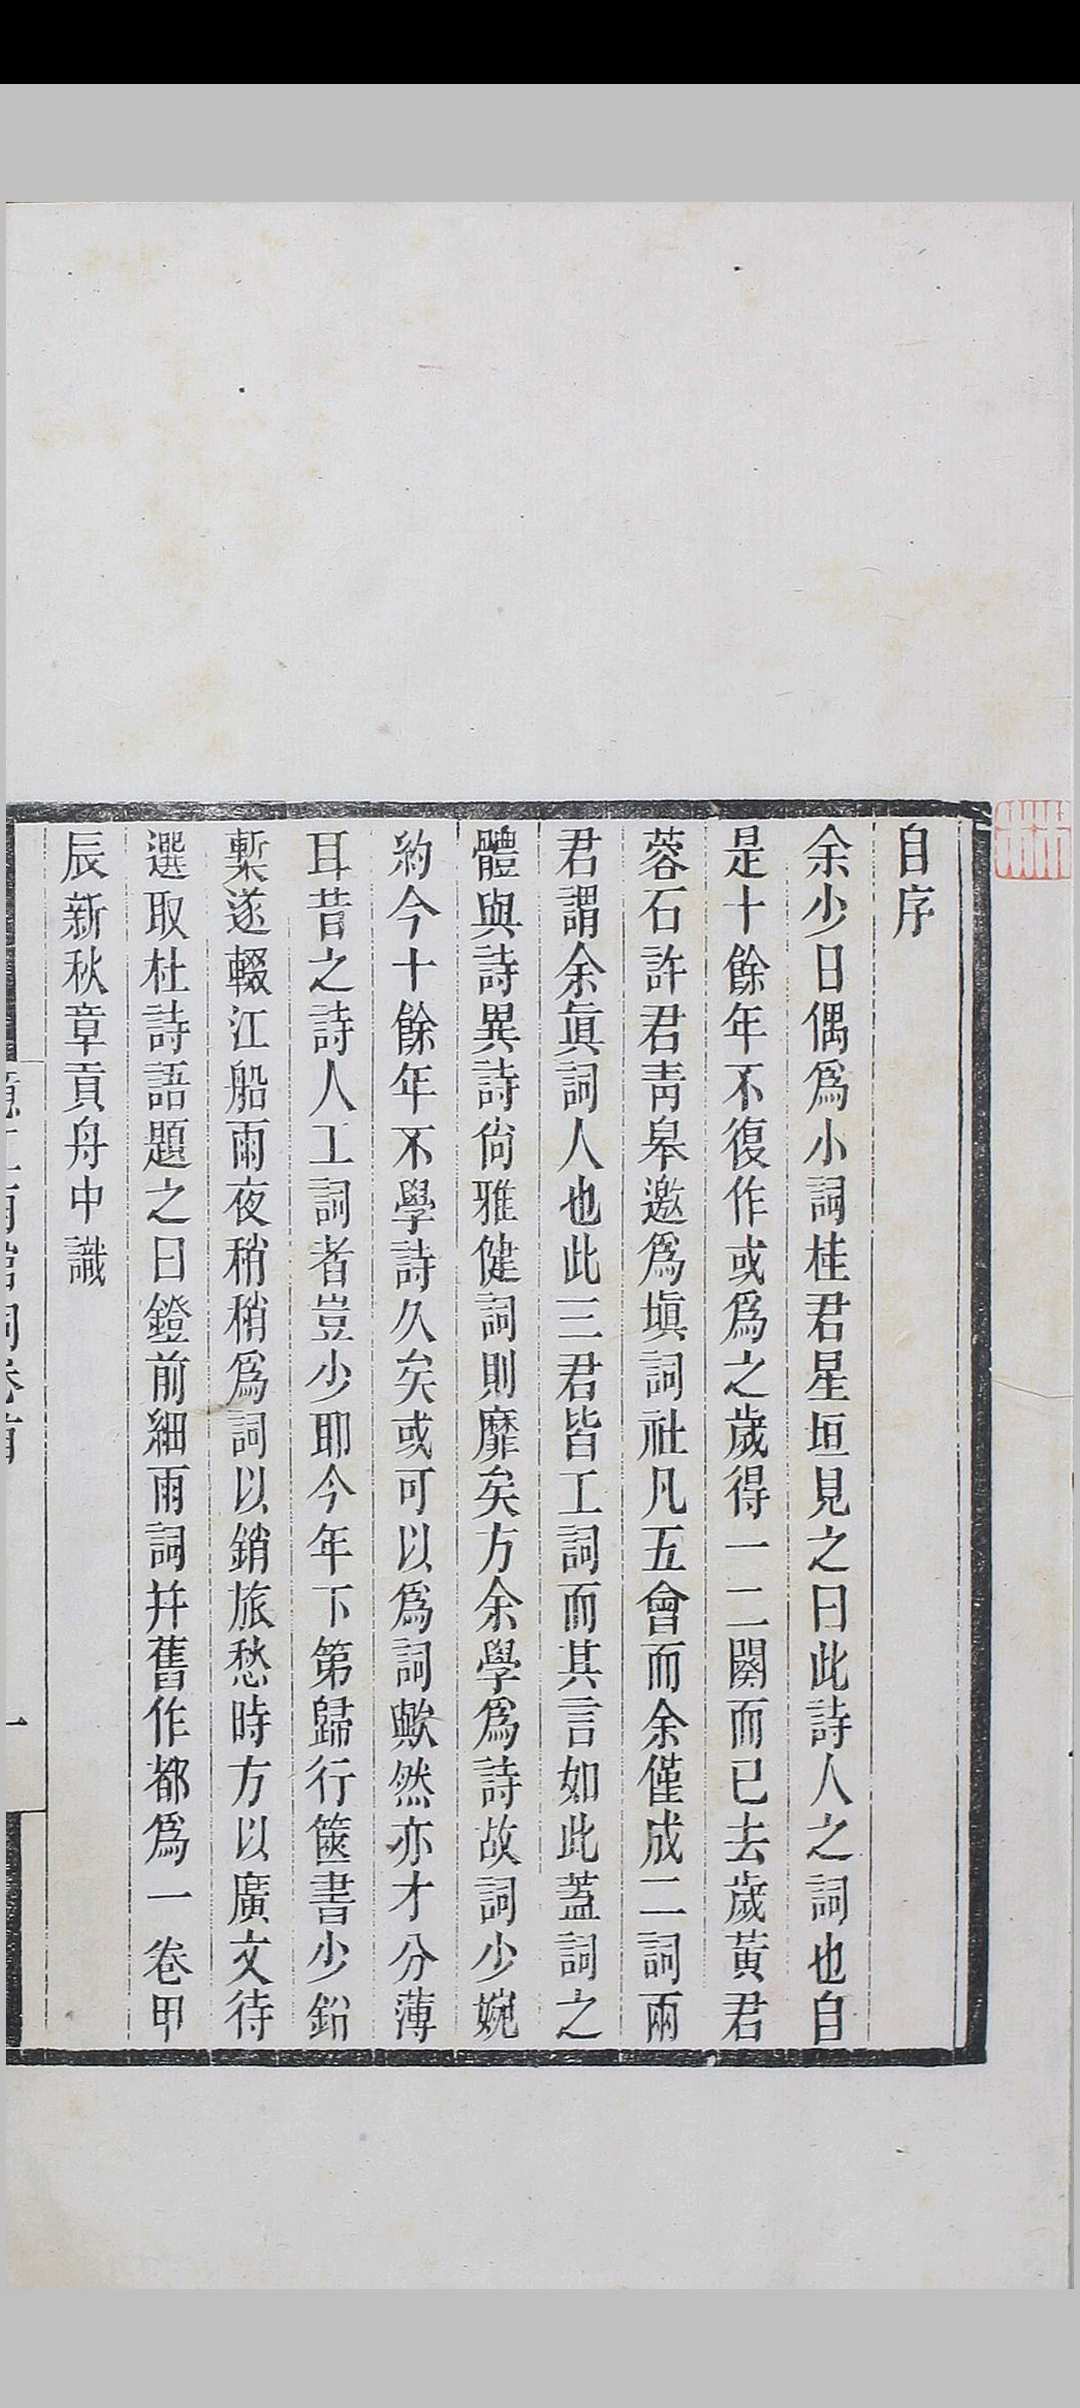 自序
余少日偶爲小詞桂君星垣見之曰此詩人之詞也自
是十餘年不復作或爲之歲得一二闋而已去歲黃君
蓉石許君靑皋邀爲塡詞社凡五會而余僅成二詞兩
君謂余眞詞人也此三君皆工詞而其言如此蓋詞之
體與詩異詩尙雅健詞則靡矣方余學爲詩故詞少婉
約今十餘年不學詩久矣或可以爲詞歟然亦才分薄
耳昔之詩人工詞者豈少耶今年下第歸行篋書少鉛
槧遂輟江船雨夜稍稍爲詞以銷旅愁時方以廣文待
選取杜詩語題之曰鐙前細雨詞幷舊作都爲一卷甲
辰新秋章貢舟中識
憶江南館詞卷首
一